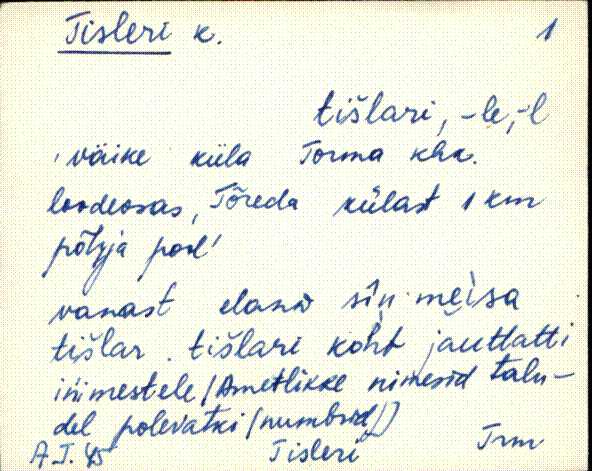 Tisleri k. 1
tišlari, -le, -l
'väike küla Torma khk.
loodeosas, Tõreda külast 1 km
põhja pool'
vanast elanɒ siin meìsa
tišlar. tišlari koht jauttatti
inimestele (Ametlikke nimesid talu-
del polevatki (numbrid))
A.T. 45 Tisleri Trm